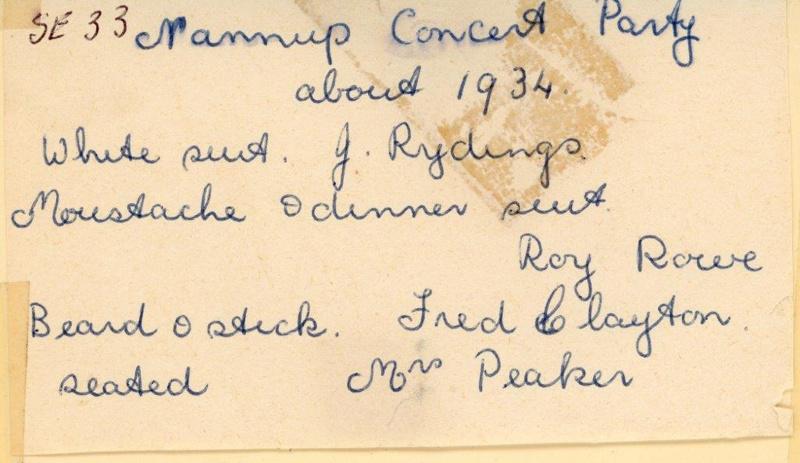 SE 33 Nannup Concert Party
about 1934.
White suit. J. Rydings.
Moustache & dinner suit.
Roy Rowe
Beard & stick. Fred Clayton.
seated Mrs Peaker